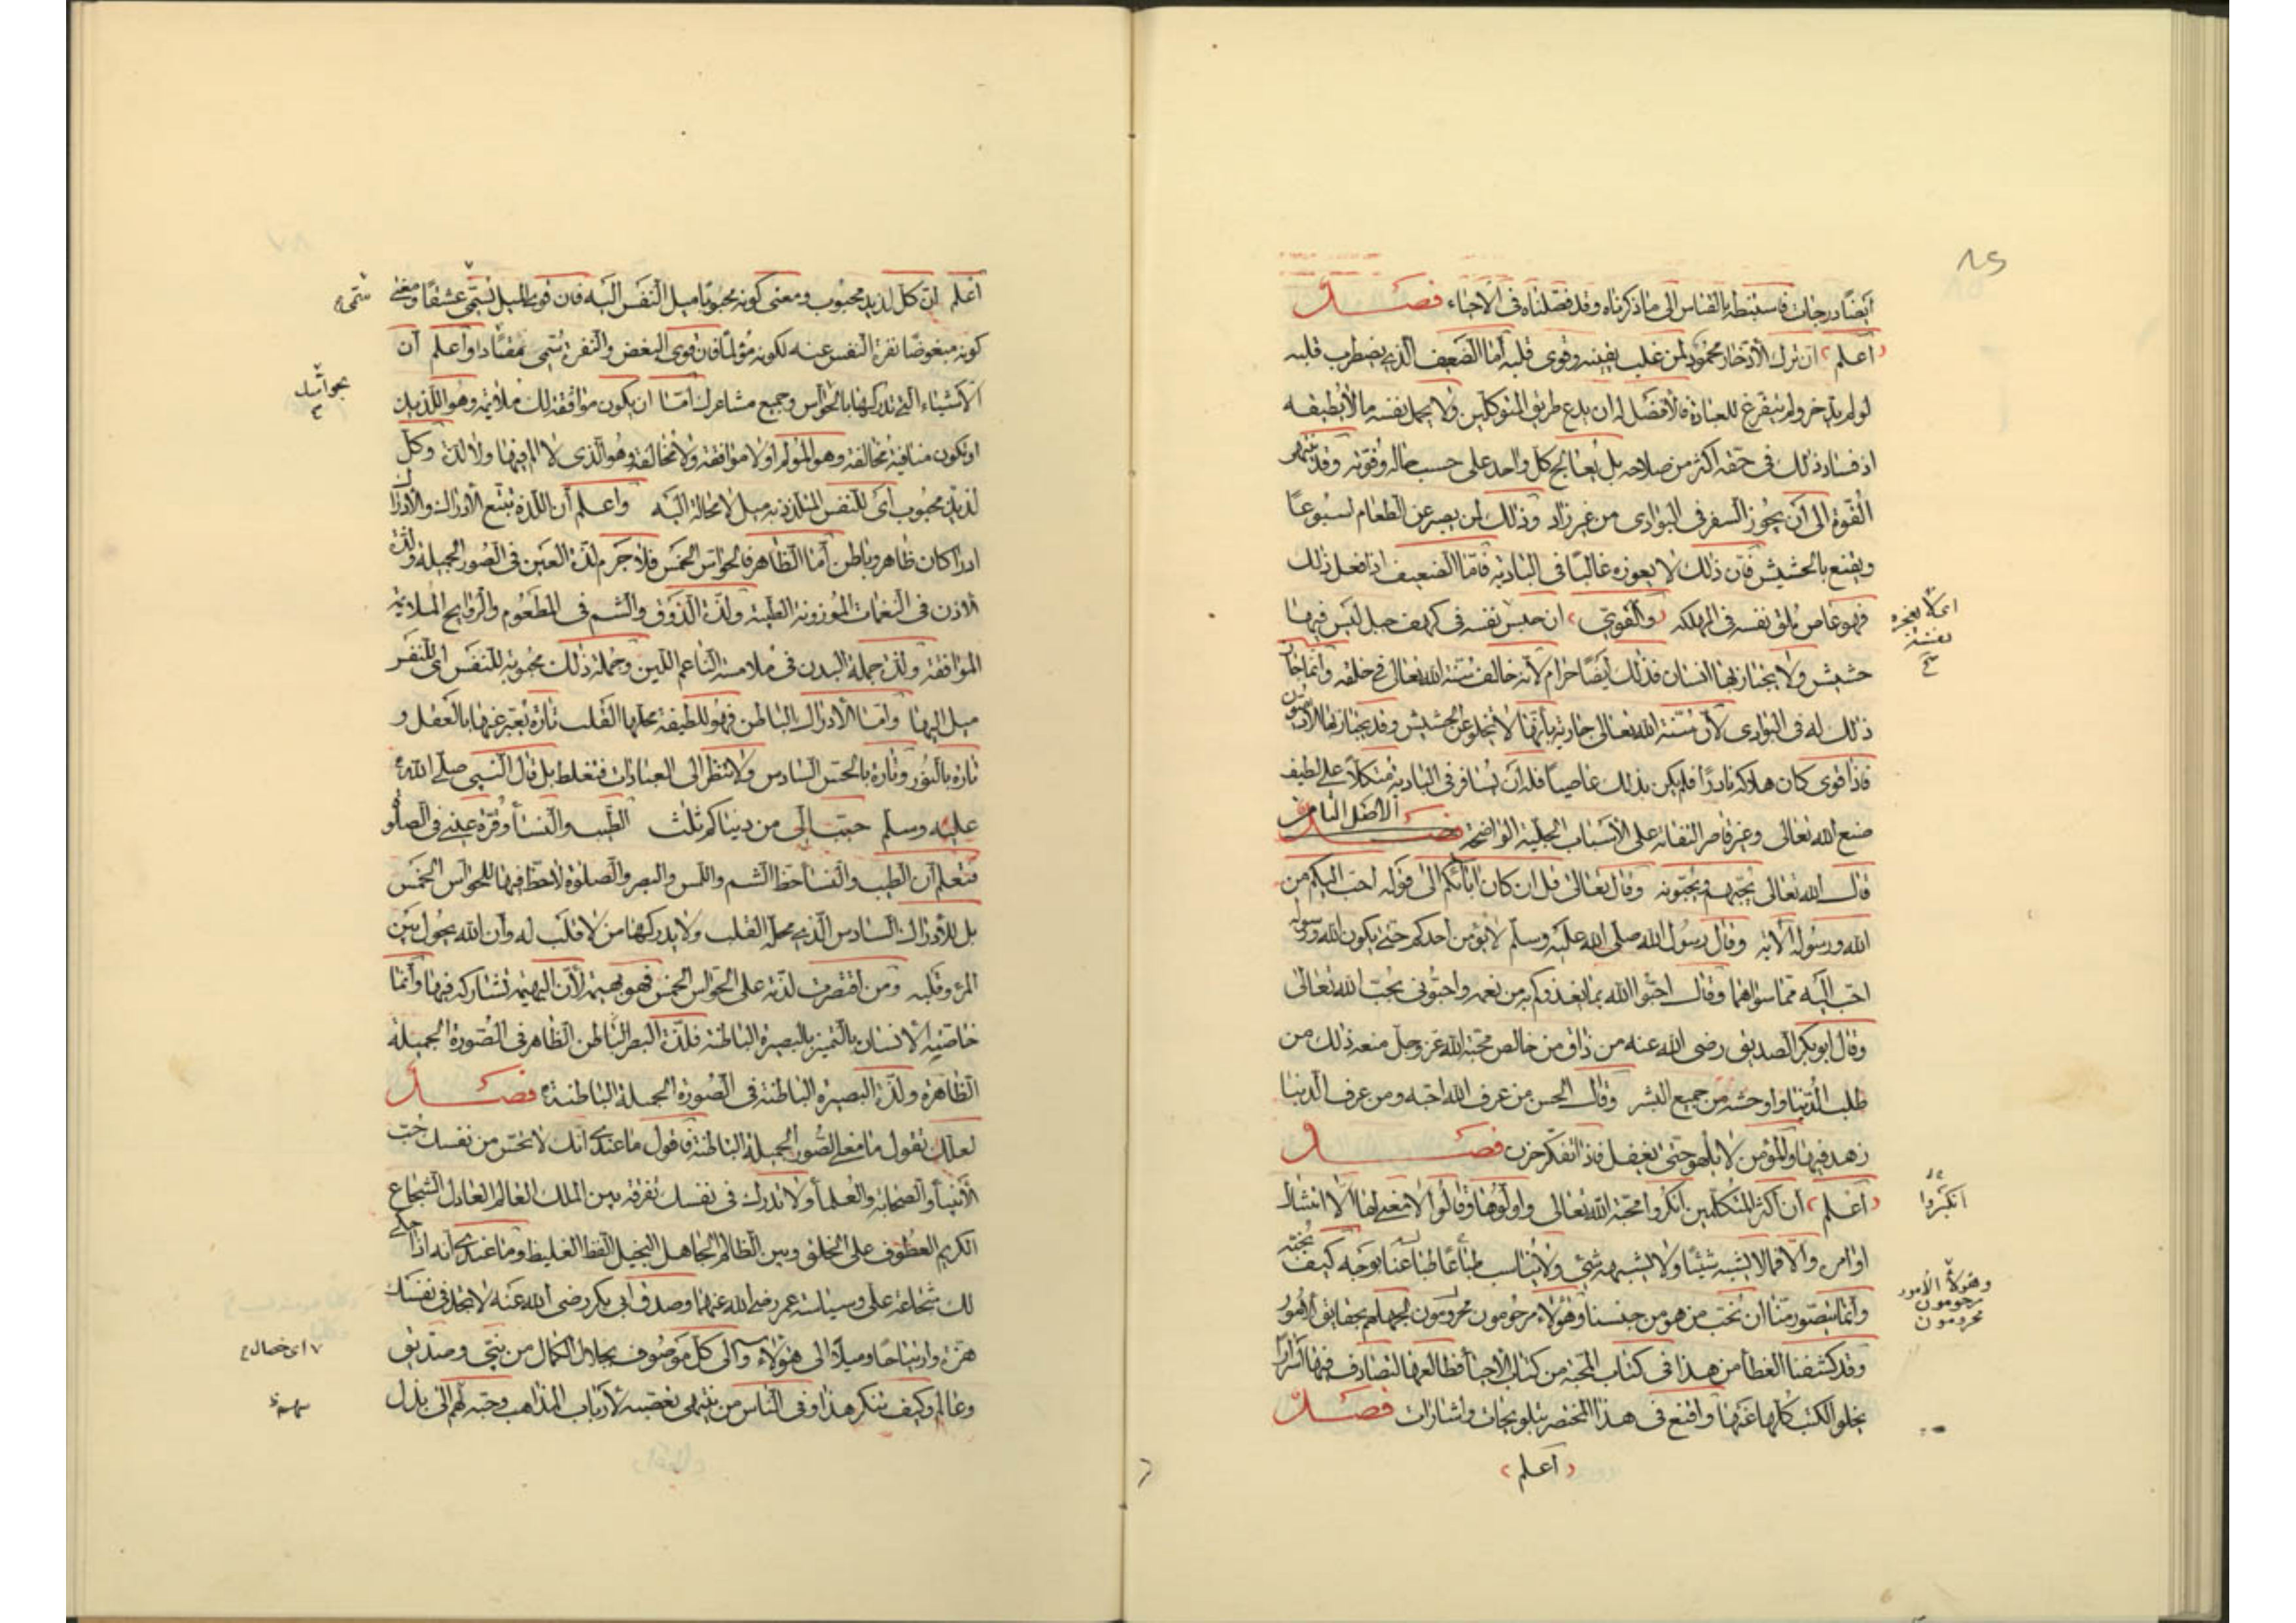 ٨٤
أيضًا درجات فاستنبطه بالقياس الى ما ذكرناه وقد فصّلناه فى الاحياء فصل
اعلم ان ترك الادّخار محمود لمن غلب يقينه وقوى قلبه امّا الضعيف الذي يضطرب قلبه
لو لم يدّخر ولم يتفرغ للعبادة فالافضل له ان يدع طريق المتوكلين ولا يحمل نفسه ما لا يطيقه
اذ فساد ذلك فى حقه اكثر من صلاحه بل يعالج كل واحد على حسب حاله وقوّته وقد ينتهى
القوة الى ان يجوز السفر فى البوادى من غير زاد وذلك لمن يصبر عن الطعام اسبوعًا
ويقنع بالحشيش فان ذلك لا يعوزه غالبًا فى البادية فامّا الضعيف اذا فعل ذلك
فهو عاص ملق نفسه فى المهلكه والقوي ان حبس نفسه فى كهف جبل ليس فيها
حشيش ولا يجتاز بها انسان فذلك ايضًا حرام لانه خالف سنة الله تعالى في خلقه وانما جاز
ذلك له فى البوادى لان سنة الله تعالى جارية بأنها لا تخلو عن الحشيش وقد يجتاز بها الآدميون
فاذا قوى كان هلاكه نادرًا فلم يكن بذلك عاصيًا فله ان يسافر فى البادية متكلاً على لطيف
صنع الله تعالى وغير قاصر التفاته على الاسباب الجلية الواضحة فصل الاصل الثامن
قال الله تعالى يحبّهم ويحبّونه وقال تعالى قل ان كان اباؤكم الى قوله احب اليكم من
الله ورسوله الآية وقال رسول الله صلى الله عليه وسلم لا يؤمن احدكم حتى يكون الله ورسوله
احب اليه مما سواهما وقال احبّوا الله بما يغذوكم به من نعمه واحبّونى بحب الله تعالى
وقال ابو بكر الصديق رضى الله عنه من ذاق من خالص محبة الله عز وجل منعه ذلك من
طلب الدّنيا واوحشه من جميع البشر وقال الحسن من عرف الله احبه ومن عرف الدنيا
زهد فيها والمؤمن لا يلهو حتى يغفل فاذا تفكر حزن فصل
اعلم ان اكثر المتكلمين انكروا محبة الله تعالى واوّلوها وقالوا لا معنى لها الّا امتثال
اوامره والّا فما لا يشبه شيئًا ولا يشبهه شئ ولا يناسب طباعنا بوجه كيف نحبّه
وانما يتصور منّا ان نحب من هو من جنسنا وهؤلاء مرجومون محرومون لجهلهم بحقايق الامور
وقد كشفنا الغطأ من هذا فى كتاب المحبة من كتاب الاحيأ فطالعها لتصادف فيها اسرارًا
يخلو الكتب كلها عنها واقنع فى هذا المختصر بتلويحات واشارات فصل
اعلم
انكروا
وهؤلاء الامور
مرجومون
محرومون
اعلم ان كل لذيذ محبوب ومعنى كونه محبوبًا ميل النفس اليه فان قوى الميل يسمّى عشقًا ومعنى
كونه مبغوضًا نفرة النفس عنه لكونه مؤلمًا فان قوى البغض والنفرة يسمى مقتًا واعلم ان
الاشياء التى تدركها بالحواس وجميع مشاعرك امّا ان يكون موافقة لك ملائمة وهو اللذيذ
او تكون منافية مخالفة وهو المؤلم او لا موافقة ولا مخالفة وهو الذى لا الم فيها ولا لذة وكل
لذيذ محبوب اى للنفس المتلذذ به ميل لا محالة اليه واعلم ان اللذة تتبع الادراك والادراك
ادراكان ظاهر وباطن أما الظاهر فالحواس الخمس فلا جرم لذة العين فى الصور الجميلة ولذة
الاذن فى النغمات الموزونة الطيبة ولذة الذوق والشم فى المطعوم والروايح الملايمة
الموافقة ولذة جملة البدن فى ملامسة الناعم اللين وجملة ذلك محبوبة للنفس اى للنفس
ميل اليها وامّا الادراك الباطن فهو للطيفة محلها القلب تارة يعبّر عنها بالعقل و
تارة بالنور وتارة بالحس السادس ولا تنظر الى العبادات فتغلط بل قال النبى صلى الله
عليه وسلم حبب الى من دنياكم ثلث الطيب والنسأ وقرة عينى فى الصلو
فتعلم ان الطيب والنسأ حظ الشم واللمس والبصر والصلوة لا حظ فيها للحواس الخمس
بل للادراك السادس الذي محله القلب ولا يدركها من لا قلب له وان الله يحول بين
المرء وقلبه ومن اقتصرت لذته على الحواس الخمس فهو بهيمة لأن البهيمة تشاركه فيها وانما
خاصيه الانسان بالتميز بالبصيرة الباطنة فلذة البصر الظاهر فى الصورة الجميلة
الظاهرة ولذة البصيرة الباطنة فى الصورة الجميلة الباطنة فصل
لعلك تقول ما معنى الصور الجميلة الباطنة فاقول ما عندى انك لا تحس من نفسك حب
الانبيأ والصحابة والعلمأ ولا تدرك فى نفسك تفرقة بين الملك العالم العادل الشجاع
الكريم العطوف على الخلق وبين الظالم الجاهل البخيل الفظ الغليظ وما عندى انه اذا حكى
لك شجاعة على وسياسة عمر رضى الله عنهما وصدق ابى بكر رضى الله عنه لا تجد فى نفسك
هزة وارتياحًا وميلاً الى هؤلاء والى كل موصوف بخلال الكمال من نبى وصديق
وعالم وكيف تنكر هذا وفى الناس من ينتهى تعصبه لأرباب المذاهب وحبه لهم الى بذل
اى خصال